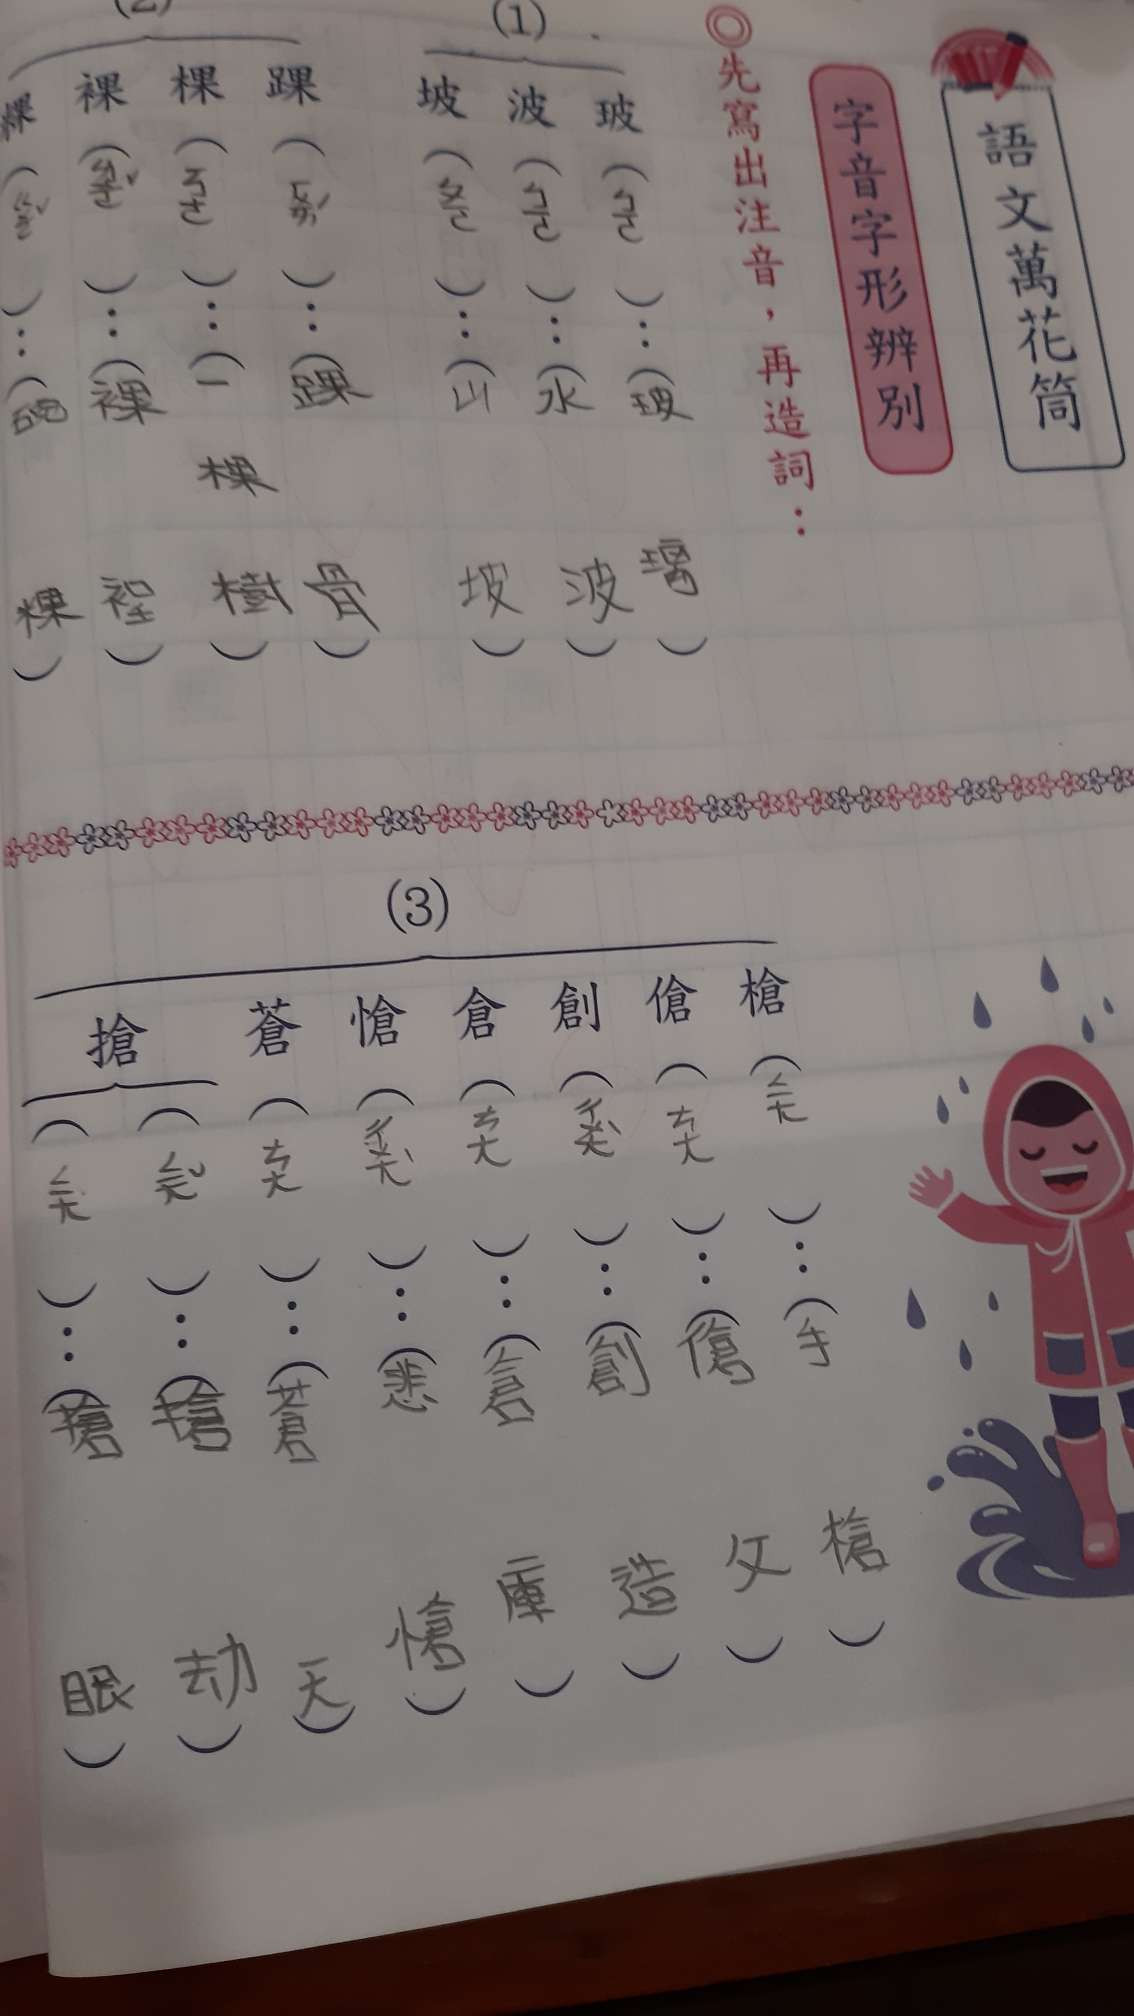 語文萬花筒
字音字形辨別
◎先寫出注音，再造詞：
(1)
玻（ㄅㄛ）：（玻璃）
波（ㄅㄛ）：（水波）
坡（ㄆㄛ）：（山坡）
(2)
踝（ㄏㄨㄞˊ）：（踝骨）
棵（ㄎㄜ）：（一棵樹）
裸（ㄌㄨㄛˇ）：（裸裎）
粿（ㄍㄨㄛˇ）：（碗粿）
(3)
槍（ㄑㄧㄤ）：（手槍）
傖（ㄘㄤ）：（傖父）
創（ㄔㄨㄤˋ）：（創造）
倉（ㄘㄤ）：（倉庫）
愴（ㄔㄨㄤˋ）：（悲愴）
蒼（ㄘㄤ）：（蒼天）
搶
（ㄑㄧㄤˇ）：（搶劫）
（ㄑㄧㄤ）：（搶眼）